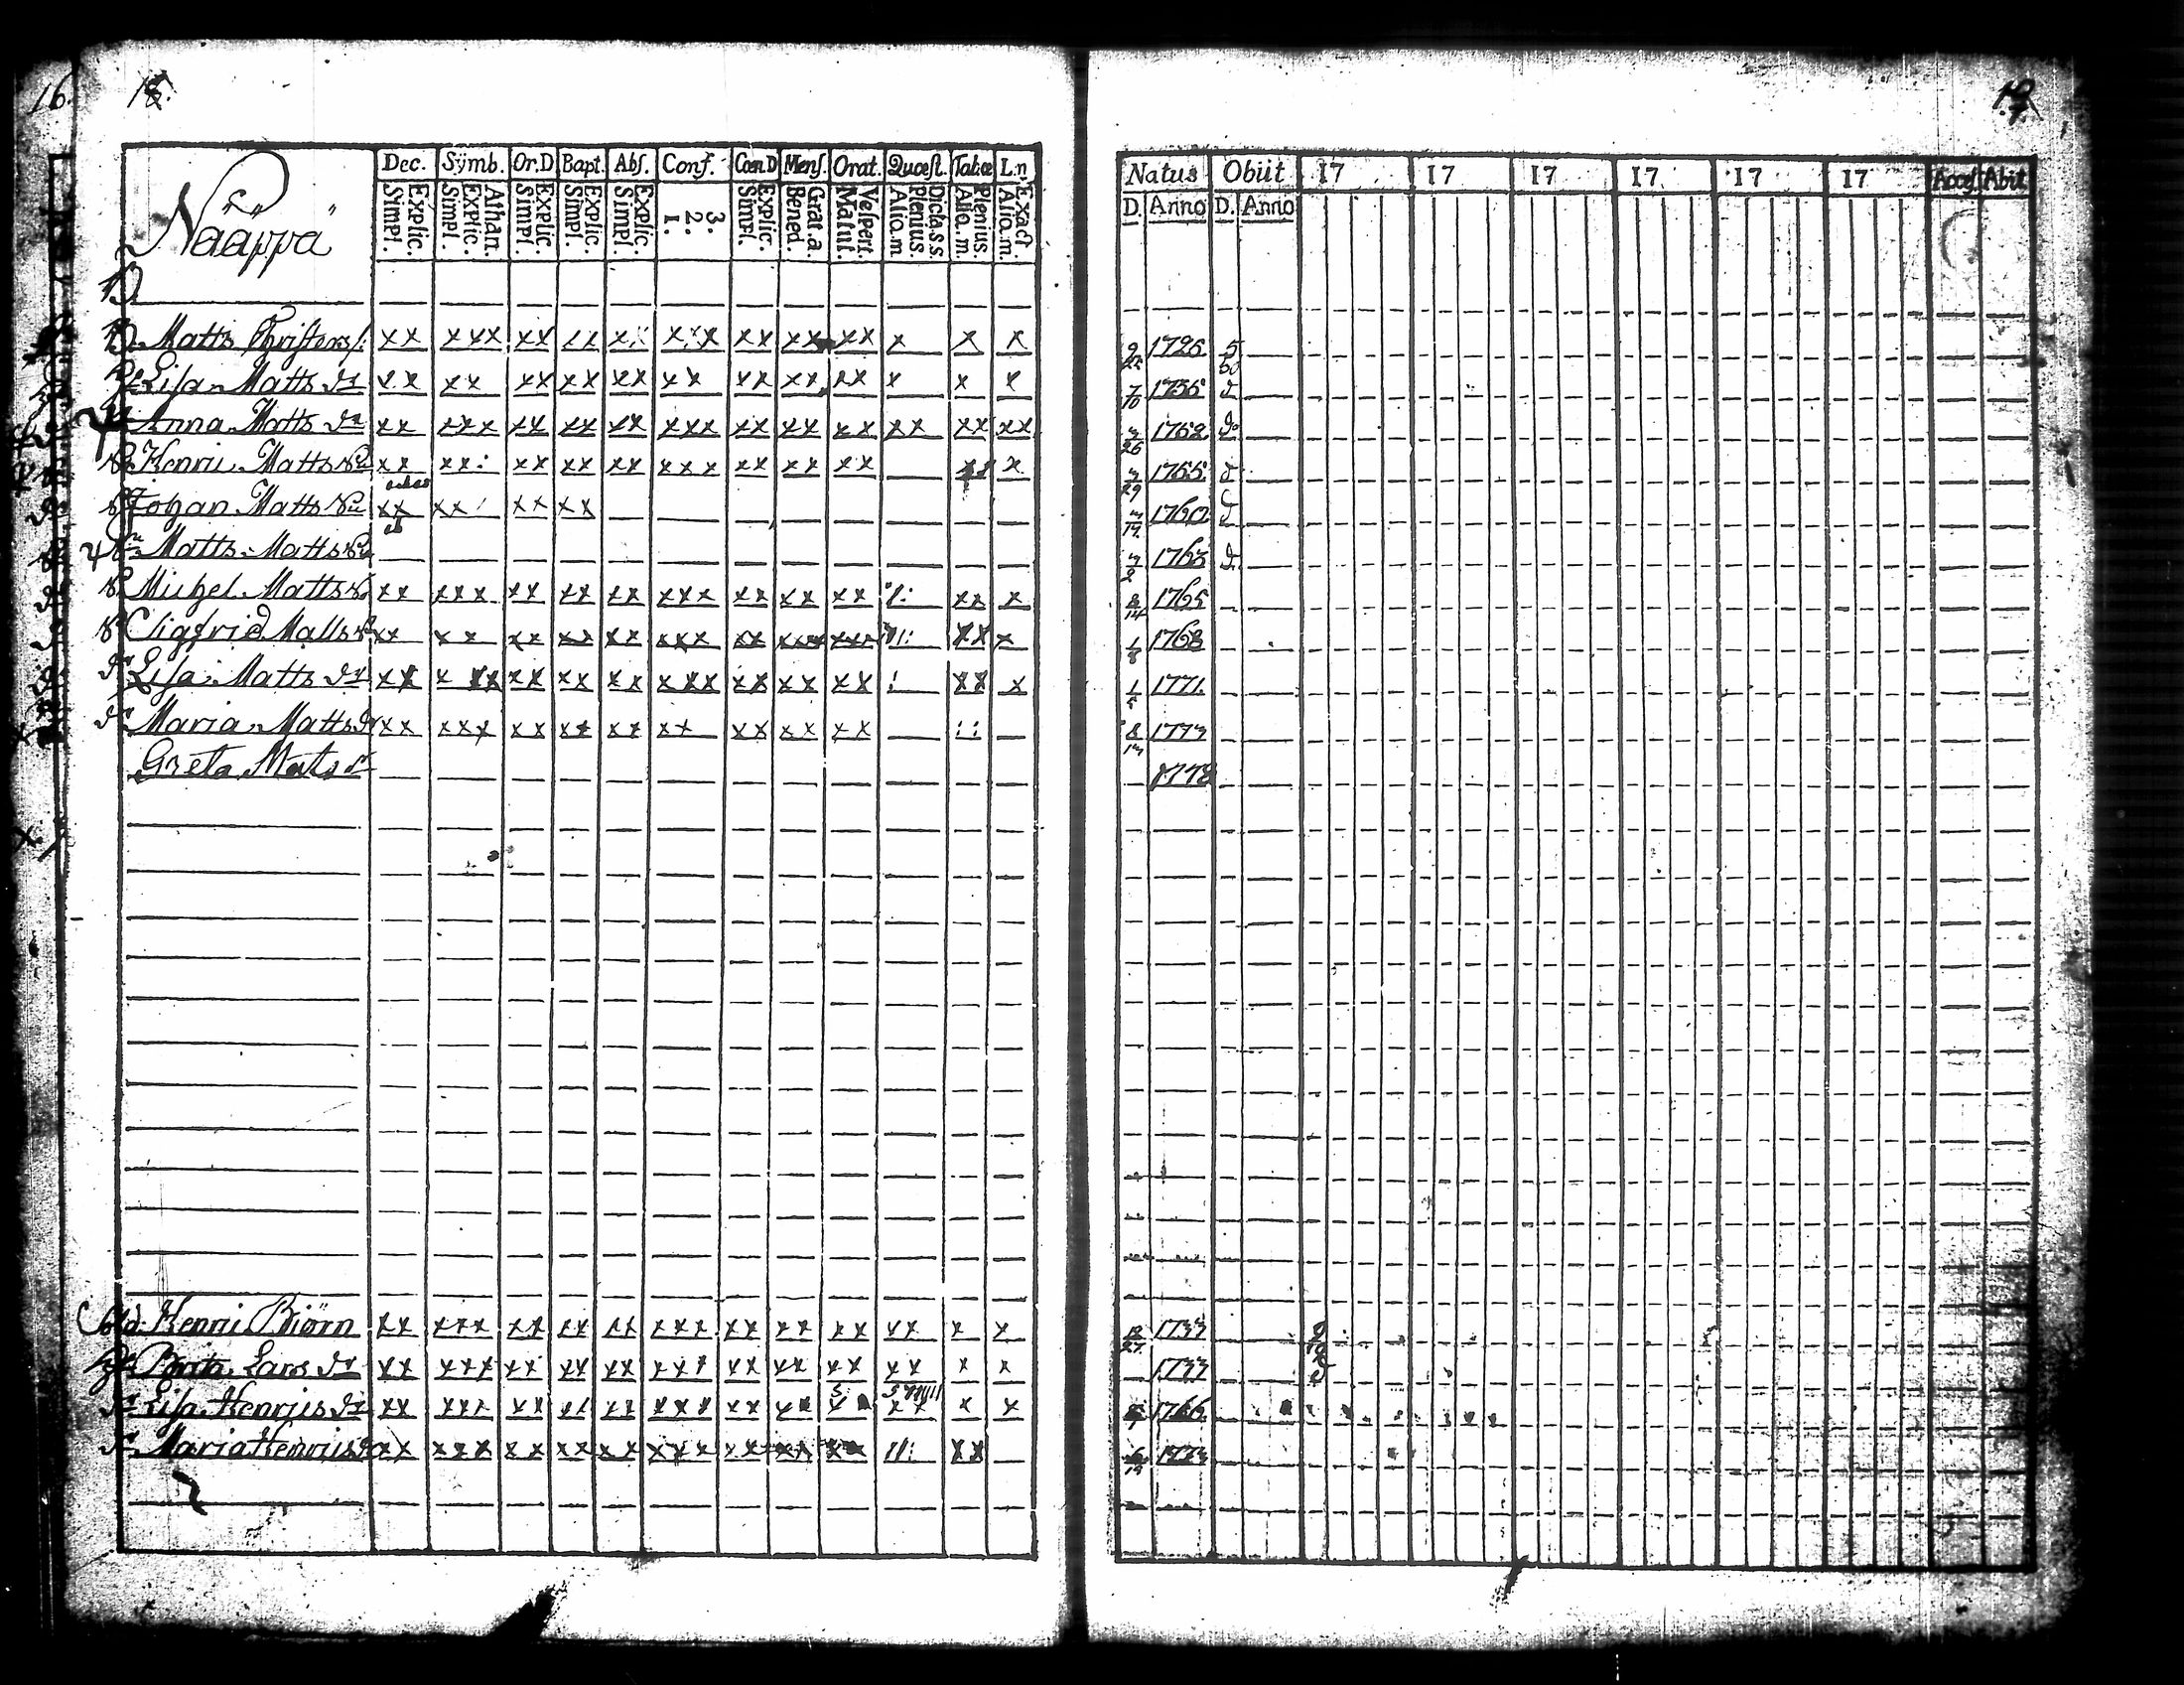 16. 18. 19
Dec. Sÿmb. Or.D Bapt. Abſ. Conf. Cœn.D Menſ. Orat. Quœſt. Tabœ L.n.
Explic. Simpl. Athan. Explic. Simpl. Explic. Simpl. Explic. Simpl. Explic. Simpl. 3. 2. 1. Explic. Simpl. Grat.a. Bened. Veſpert. Matut. Dicta S S. Plenius. Aliq.m Plenius. Aliq.m. Exact Aliq.m.
Natus Obiit 17 17 17 17 17 17 Acceſ Abit
D. Anno D. Anno
Nääppä
B. Matts Chriſters/: xx xxx xx xx xx xxx xx xx xx x x x 1726 5
Liſa Matts dr xx xx xx xx xx xx xx xx xx x x x 7/10 1736 d
Anna Matts dr xx xxx xx xx xx xxx xx xx xx xx xx xx 1752 do
Henric Matts xx xx: xx xx xx xxx xx xx xx x 1755 d
Johan Matts xx xx xx xx 1760 d
Matts Matts 1763 d.
Michel Matts xx xxx xx xx xx xxx xx xx xx /: xx x 8/14 1765
Sigfrid Matts xx xx xx xx xx xxx xx xx x 1/8 1768
Liſa Matts dr xx xx xx xx xxx xx xx xx xx x 1/5 1771.
Maria Matts dr xx xxx xx xx xx xx xx xx xx :: 1773
Greta Mats dr 1778
Sold. Henric Biörn xx xxx xx xx xx xxx xx xx xx xx x x 12/27 1733
Brita Lars dr xx xxx xx xx xx xxx xx xx xx xx x x 1733
dr Liſa Henrics dr xx xxx xx xx xx xxx xx x x 1766
dr Maria Henrics dr xx xxx xx xx xx xxx xx xx xx //: xx 1773